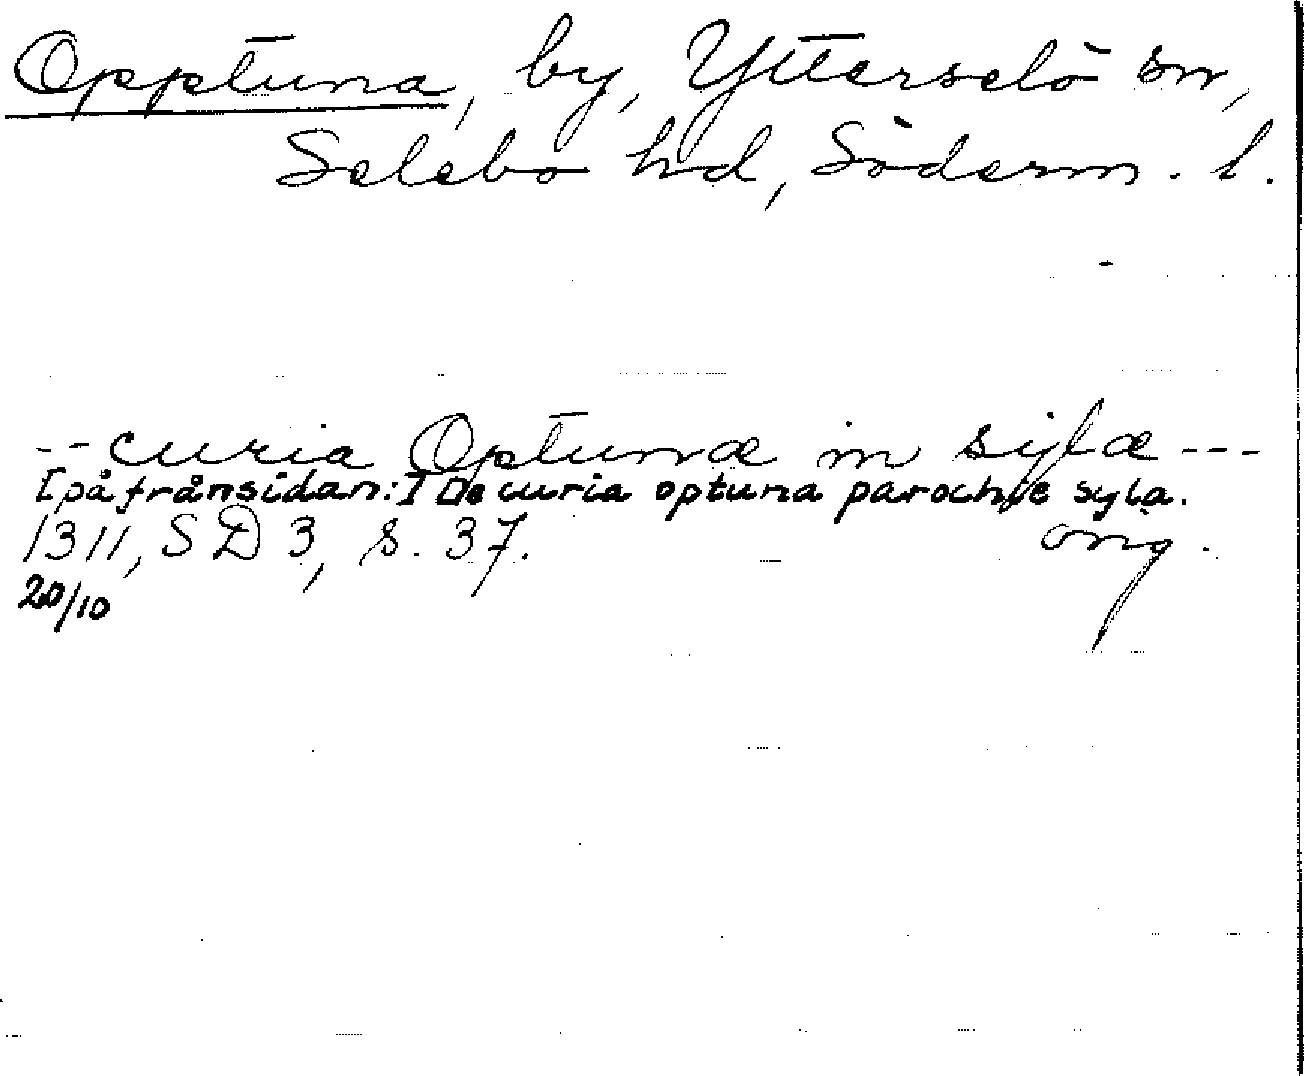 Opptuna, by, Ytterselö sn,
Selebo hd, Söderm. l.
-- curia Optunæ in sylæ ---
[på frånsidan:] De curia optuna parochie syla.
1311, SD 3, s. 37. orig.
20/10